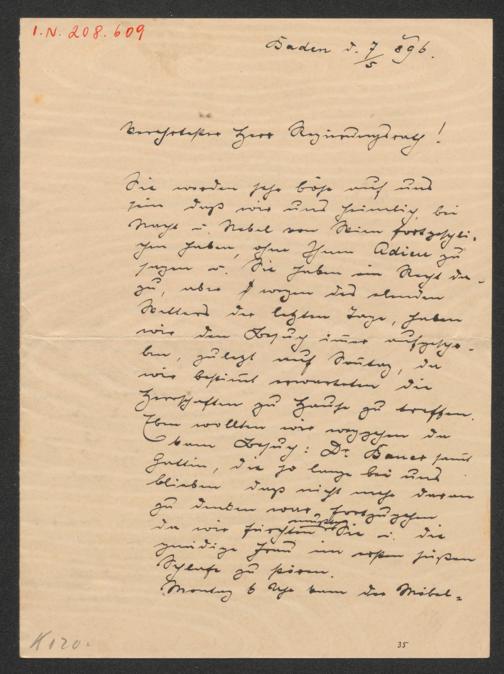 I.N. 208.609
Baden d. 7/5 896.
Verehrtester Herr Regierungsrath!
Sie werden sehr böse auf uns
sein daß wir uns heimlich bei
Nacht u. Nebel von Wien fortgeschli-
chen haben, ohne Ihnen Adieu zu
sagen u. Sie haben ein Recht da-
zu, aber wegen des elenden
Wetters der letzten Tage, haben
wir den Besuch immer aufgescho-
ben, zuletzt auf Sontag, da
wir bestimt erwarteten die
Herrschaften zu Hause zu treffen.
Eben wollten wir weggehen da
kam Besuch: Dr. Bauer samt
Gattin, die so lange bei uns
blieben daß nicht mehr daran
zu denken war, fortzugehen
da wir fürchten mußten Sie u. die
gnädige Frau im ersten süßen
Schlafe zu stören.
Montag 6 Uhr kam der Möbel-
K 120.
35